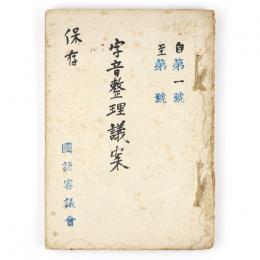 自第一號
至第 號
字音整理議案
保存
國語審議會